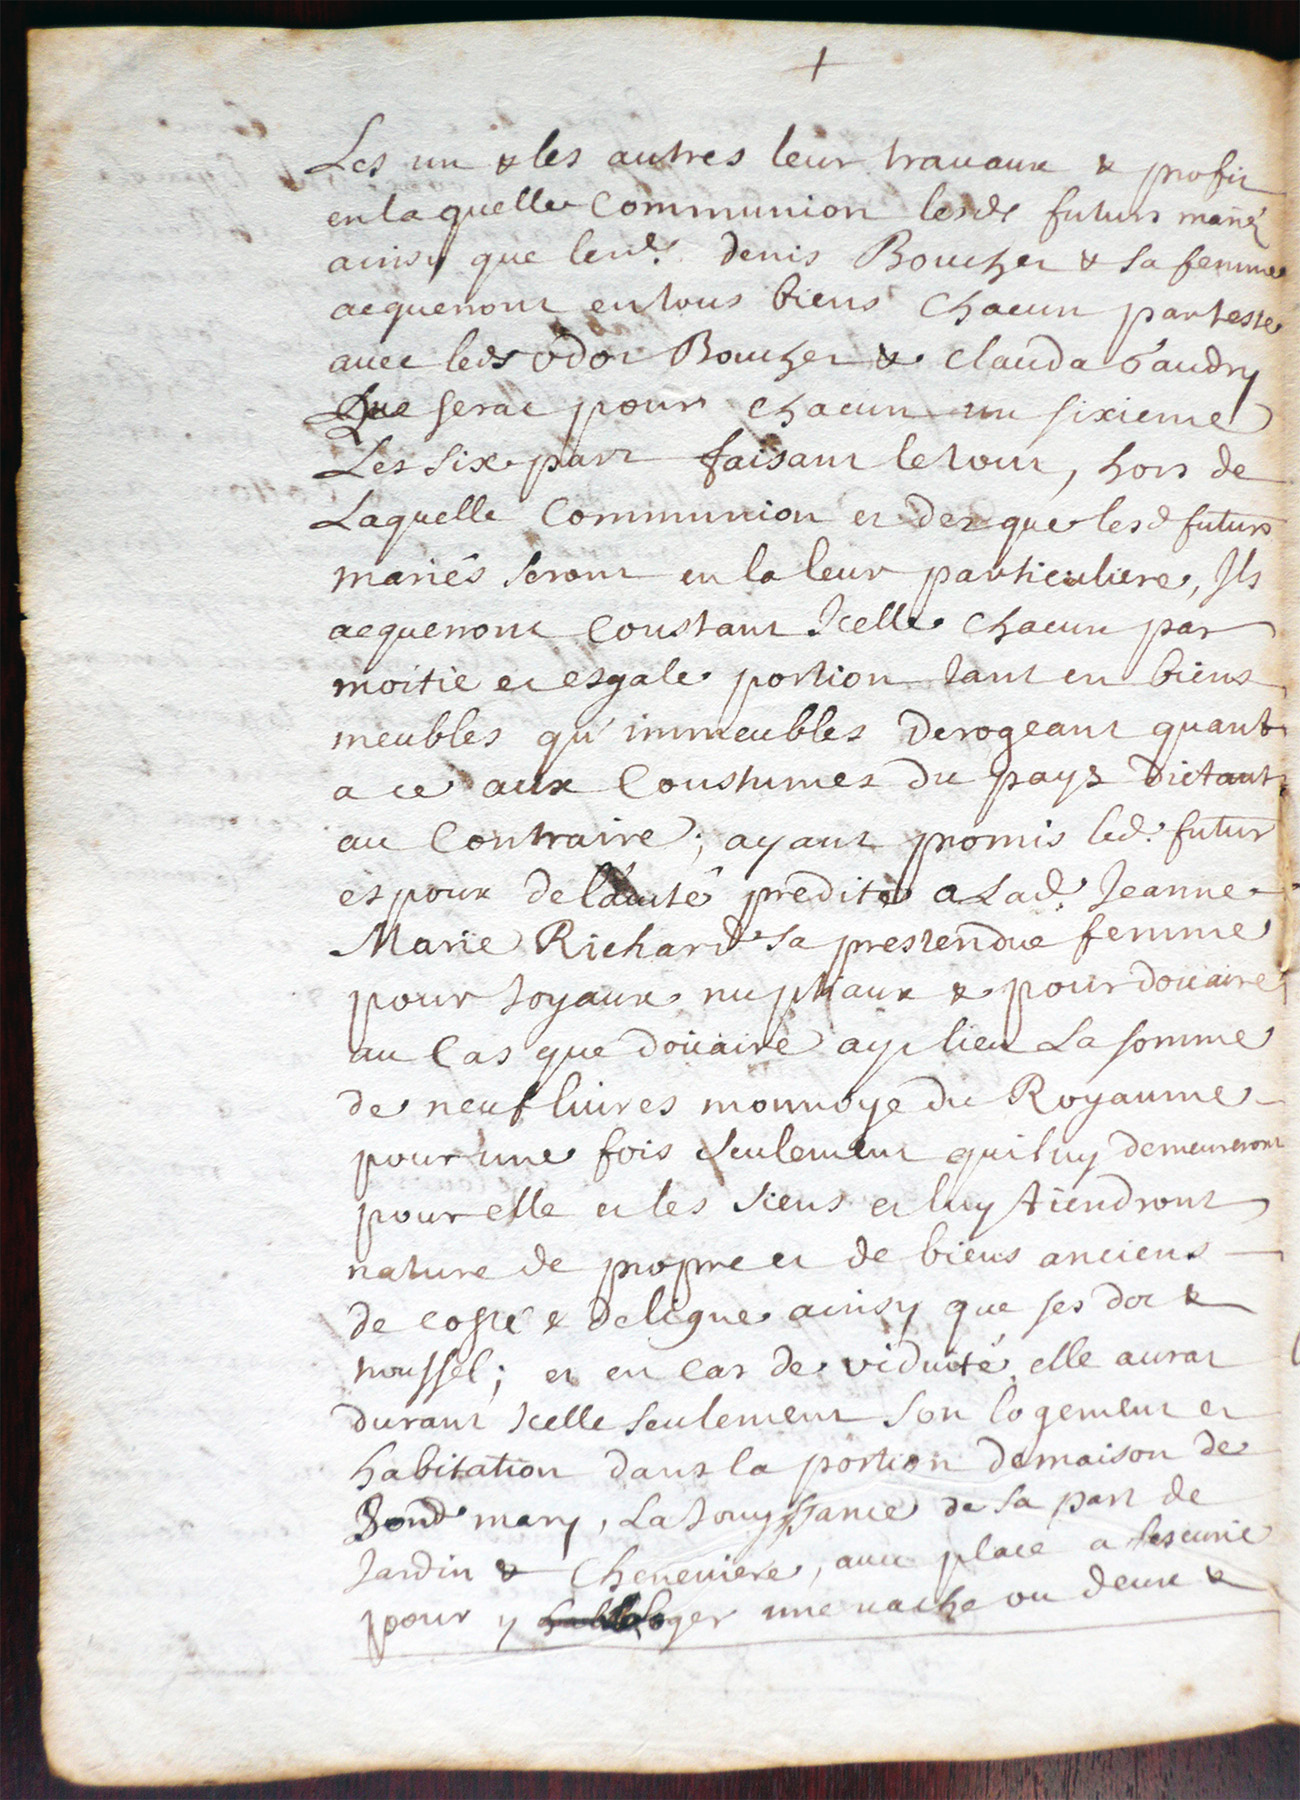 +
Les un & les autres leur travaux & profit
en laquelle Communion lesd futurs mariés
ainsy que led. denis Boucher & sa femme
acqueront en tous biens chacun par teste
avec leds odot Boucher & Clauda Gaudry
Que serat pour chacun un sixieme
Les six part faisant le tout, hors de
Laquelle Communion et dez que lesd futurs
mariés seront en la leur particuliere, Ils
acqueront Constant Icelle chacun par
moitie et esgale portion tant en biens
meubles qu'immeubles Derogeant quant
a ce aux Coustumes du pays Dictant
au Contraire; ayant promis led. futur
espoux de l'autté predite a Lad. Jeanne
Marie Richard sa prestendue femme
pour Joyaux nuptiaux & pour douaire
au Cas que doüaire ayt lieu La somme
de neuf livres monnoye du Royaume
pour une fois seulement qui luy demeureront
pour elle et les siens et luy tiendront
nature de propre et de biens anciens
de costé & de ligne ainsy que ses dot &
troussel; et en cas de viduité elle aurat
durant Icelle seulement son logement et
habitation dans la portion de maison de
Sond mary, La Jouyssance de sa part de
Jardin & Cheneviere, avec place a lescurie
pour y loger une vache ou deux &